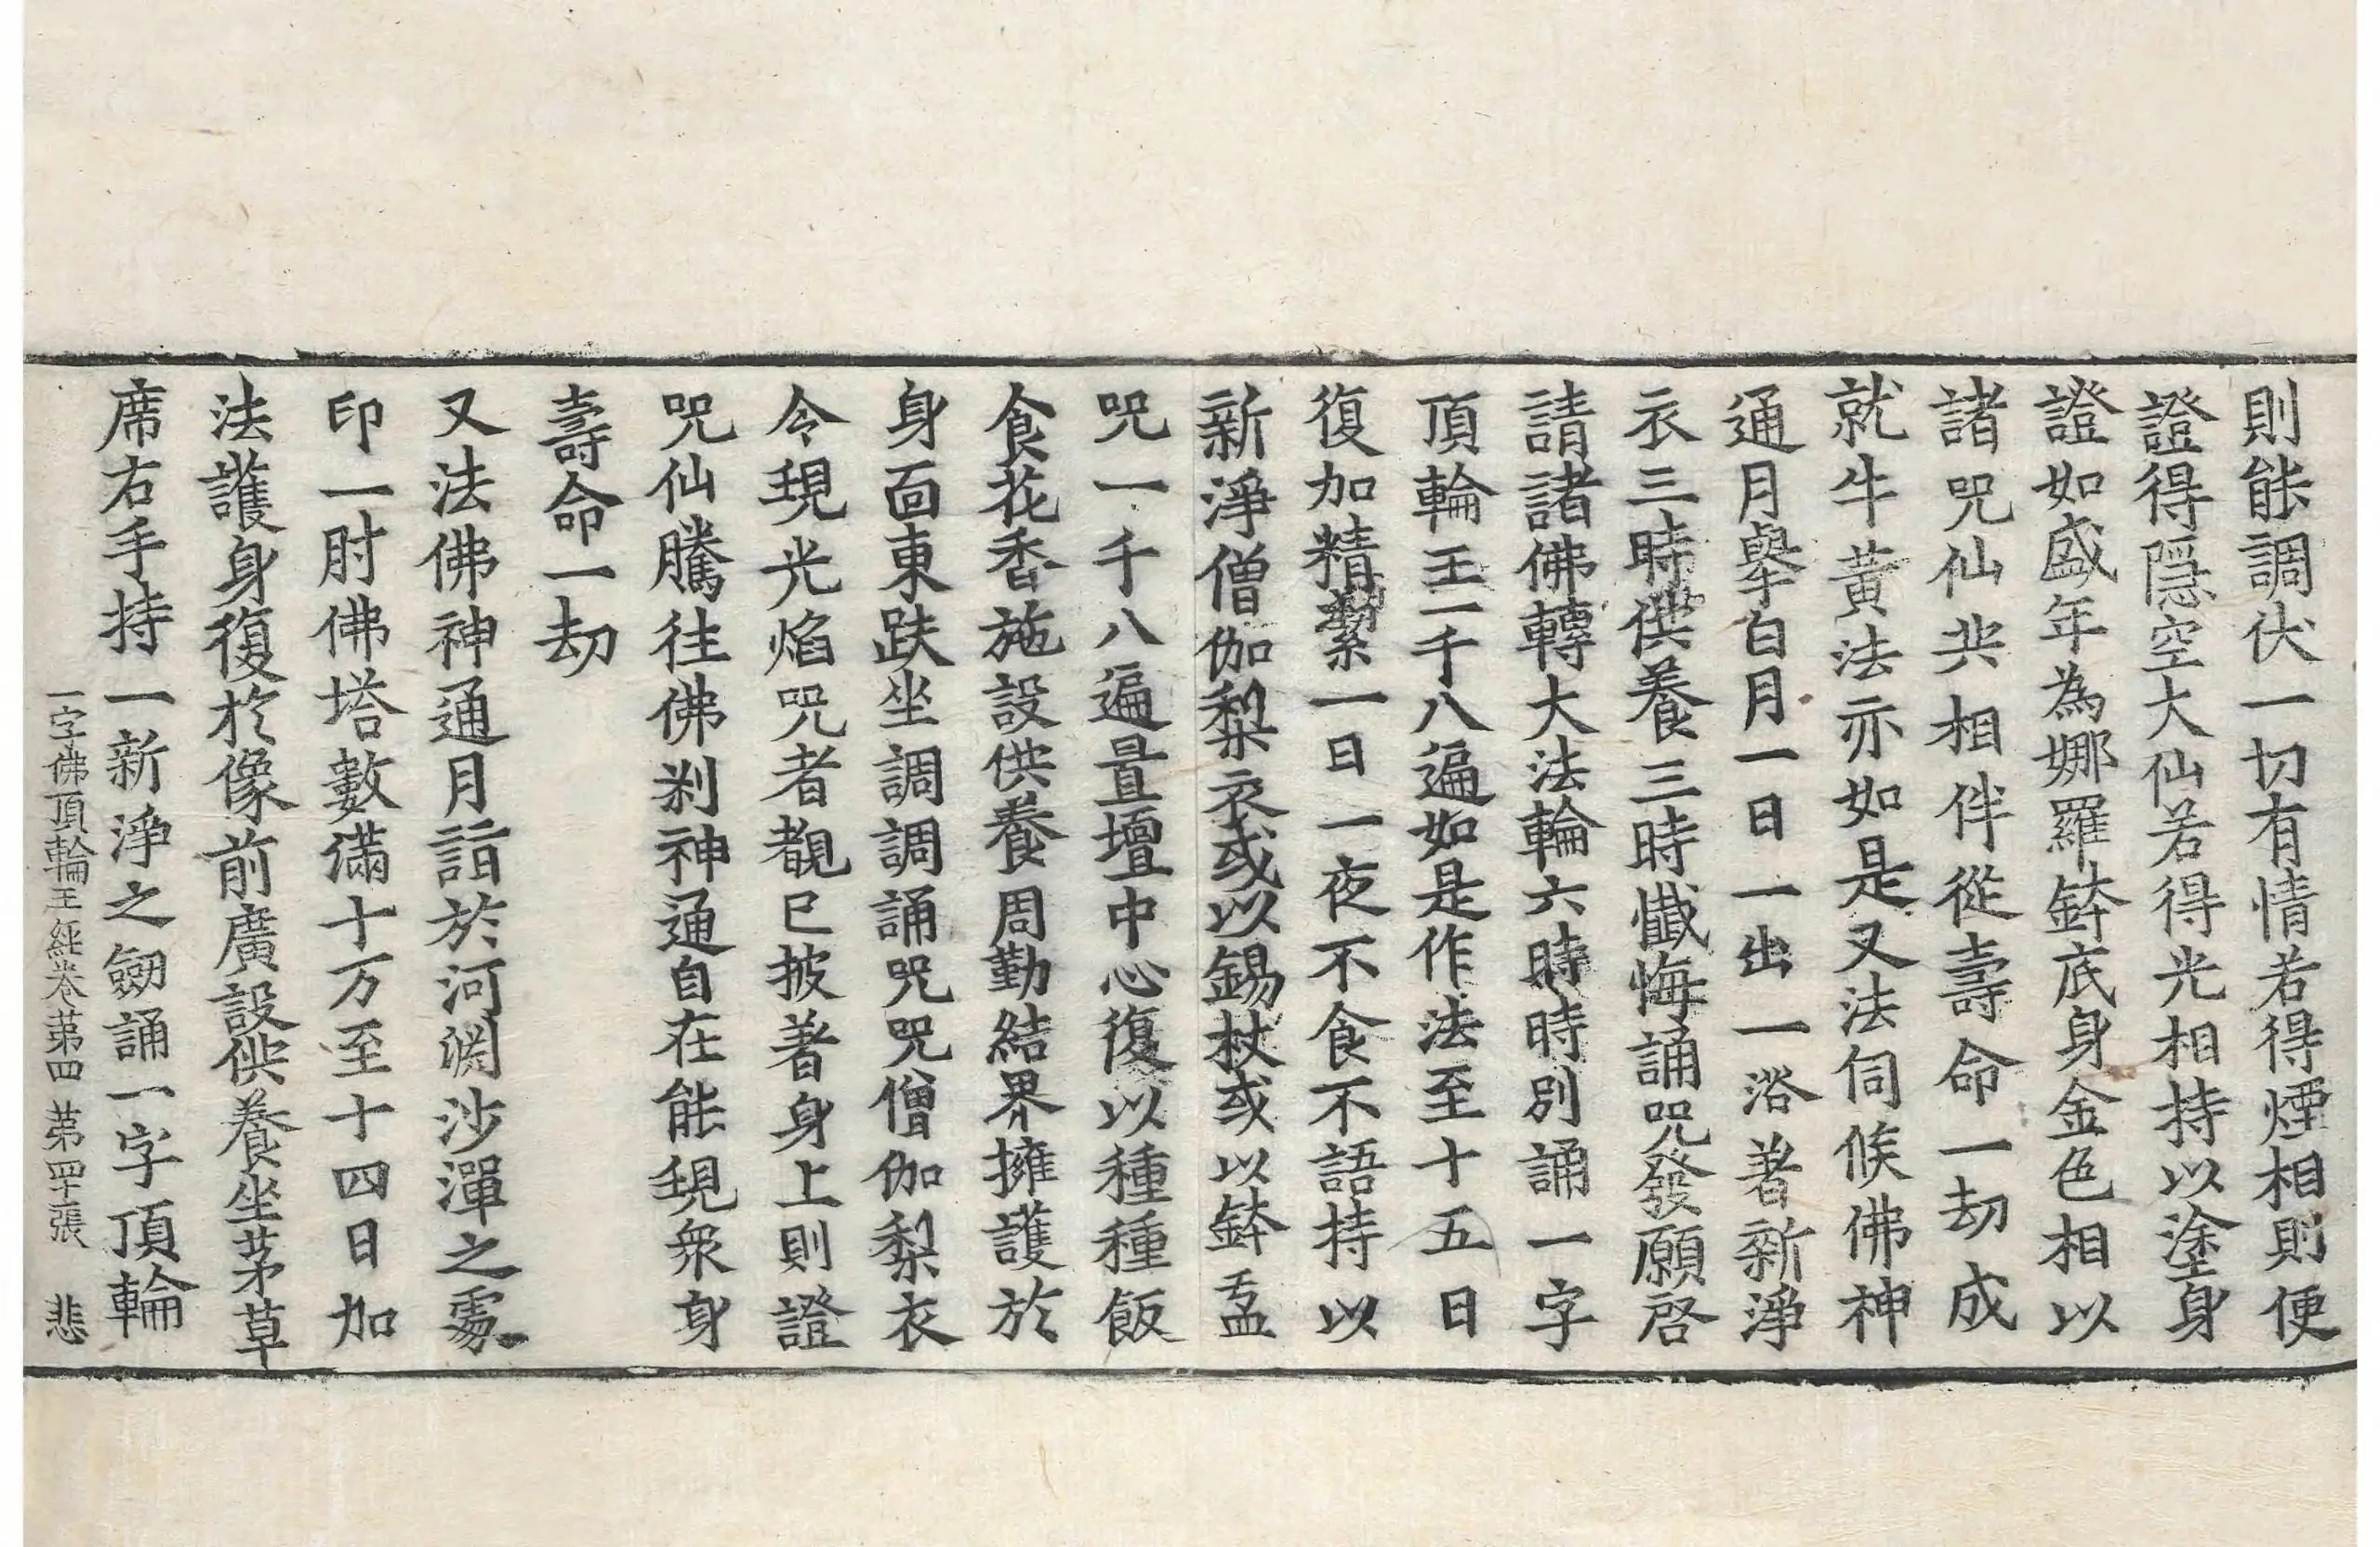 則能調伏一切有情若得煙相則便
證得隱空大仙若得光相持以塗身
證如盛年為娜羅鉢底身金色相以
諸咒仙共相伴從壽命一劫成
就牛黃法亦如是又法伺候佛神
通月舉白月一日一出一浴著新淨
衣三時供養三時懺悔誦咒發願啓
請諸佛轉大法輪六時時別誦一字
頂輪王一千八遍如是作法至十五日
復加精潔一日一夜不食不語持以
新淨僧伽梨衣或以錫杖或以鉢盂
咒一千八遍置壇中心復以種種飯
食花香施設供養周勤結界擁護於
身面東趺坐調調誦咒咒僧伽梨衣
令現光焰咒者覩已披著身上則證
咒仙騰往佛剎神通自在能現衆身
壽命一劫
又法佛神通月詣於河渕沙潬之處
印一肘佛塔數滿十万至十四日加
法護身復於像前廣設供養坐茅草
席右手持一新淨之劒誦一字頂輪
一字佛頂輪王經卷第四 第罕張 悲